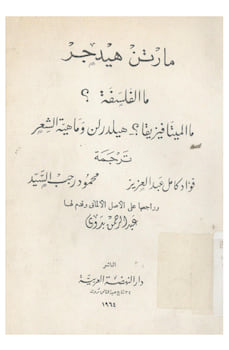 مارتن هيدجر
ما الفلسفة ؟
ما الميتافيزيقا؟ - هيلدرلن وماهية الشعر
ترجمة
فؤاد كامل عبد العزيز محمود رجب السيد
وراجعها على الأصل الألماني وقدم لها
عبد الرحمن بدوي
الناشر
دار النهضة العربية
١٩٦٤